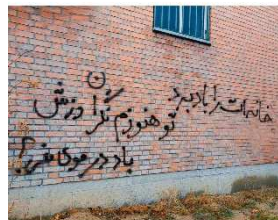 خانه ات را باد برد
تو هنوزم نگران وزش
باد در موی منی؟